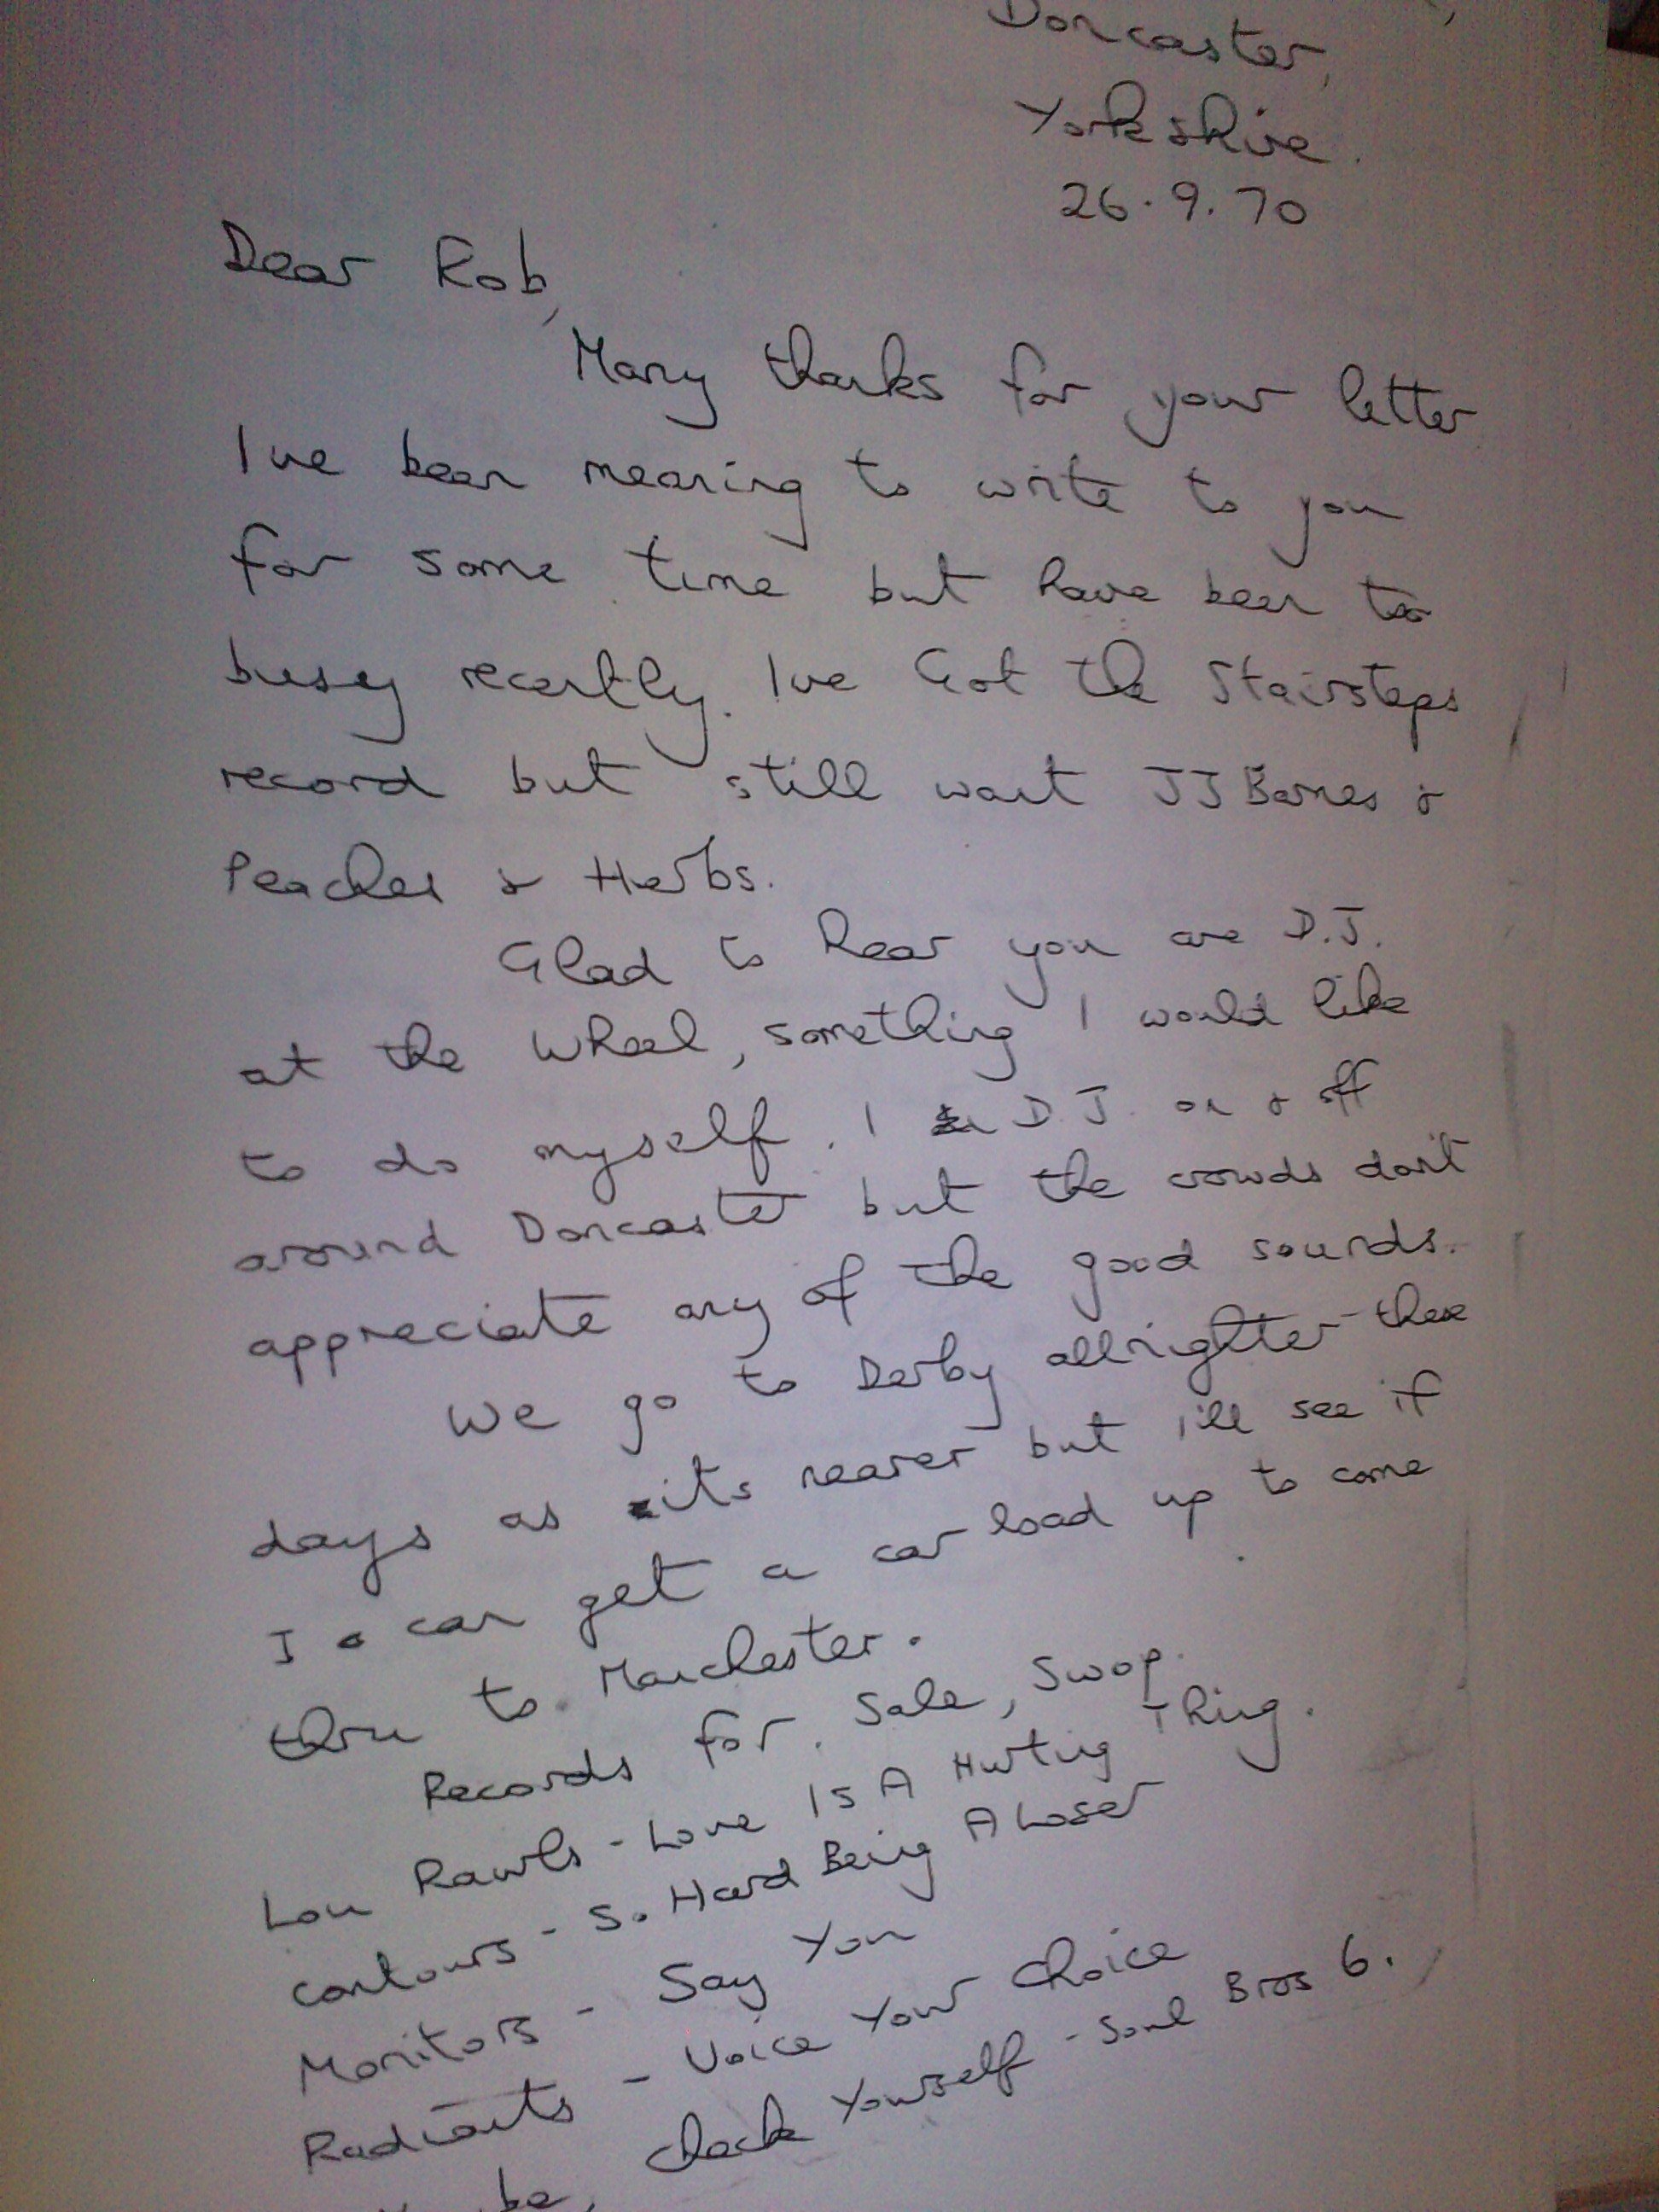 Doncaster,
Yorkshire.
26.9.70
Dear Rob,
Many thanks for your letter
I've been meaning to write to you
for some time but have been too
busy recently. I've Got the Stairsteps
record but still want JJ Barnes &
Peaches & Herbs.
Glad to hear you are D.J.
at the Wheel, something I would like
to do myself. I D.J. on & off
around Doncaster but the crowds don't
appreciate any of the good sounds.
We go to Derby allnighter these
days as its nearer but i'll see if
I can get a car load up to come
thru to Manchester.
Records for Sale, Swop.
Lou Rawls - Love Is A Hurting Thing.
Contours - So Hard Being A Loser
Monitors - Say You
Radiants - Voice Your Choice
be, Check Yourself - Soul Bros 6.